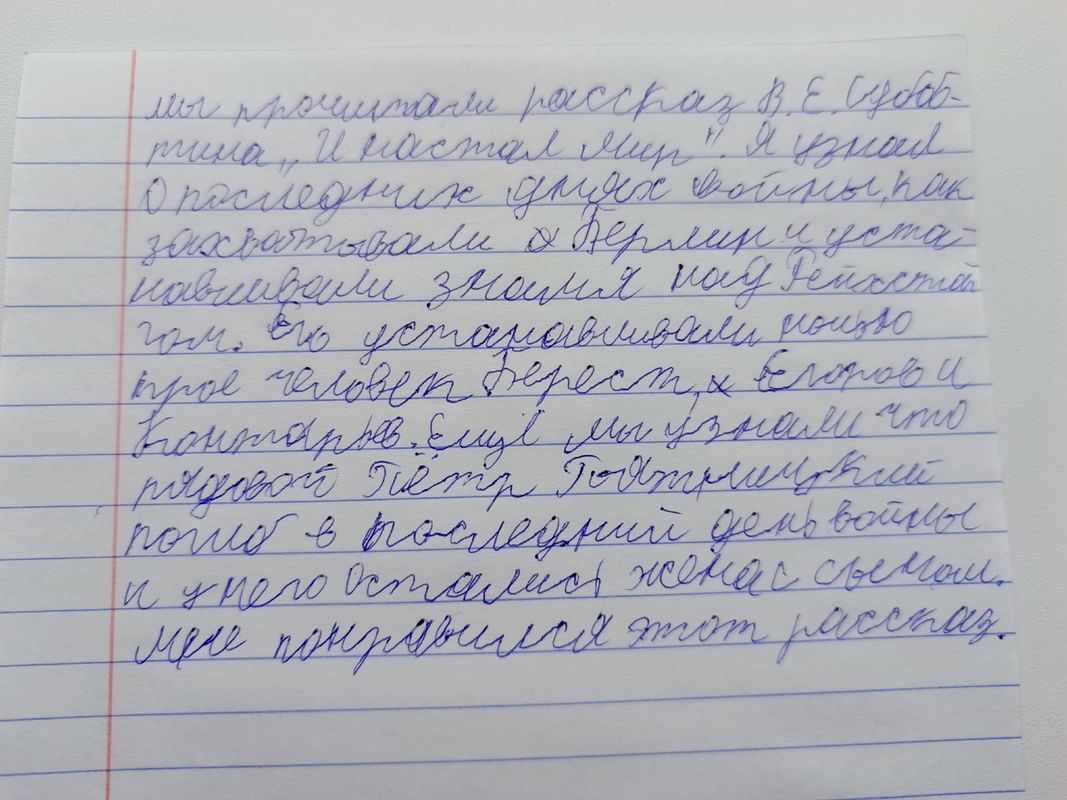 мы прочитали рассказ В. Е. Субоб-
тина „И настал мир". Я узнал
о последних днях войны, как
захватывали Берлин и уста-
навливали знамя над Рейхста
гом. Его устанавливали ночью
трое человек Берест, Егоров и
Контарьев. Ещё мы узнали что
рядовой Пётр Пятницкий
погиб в последний день войны
и у него остались жена с сыном.
мне понравился этот рассказ.